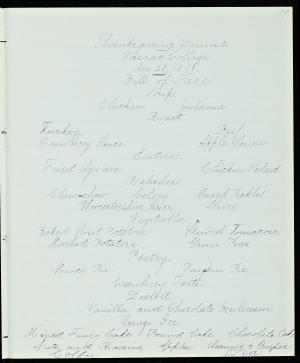 Thanksgiving Dinner
Vassar College
Nov 28
Bill of Fare
Soup
Chicken Julienne
Roast
Turkey Beef
Cranberry Sauce Apple Sauce
Entrees
Fried Oysters Chicken Salad
Relishes
Chowchow Celery Mixed Pickles
Worcestershire Sauce Olives
Vegetables
Baked Sweet Potatoes Stewed Tomatoes
Mashed Potatoes Green Peas
Pastry
Mince Pie Pumpkin Pie
Cranberry Tarts
Dessert
Vanilla and Chocolate Ice Cream
Orange Ice
Mixed Fancy Cake Pound Cake Chocolate Cake
Nuts and Raisins Apples Oranges & Grapes
Coffee Tea